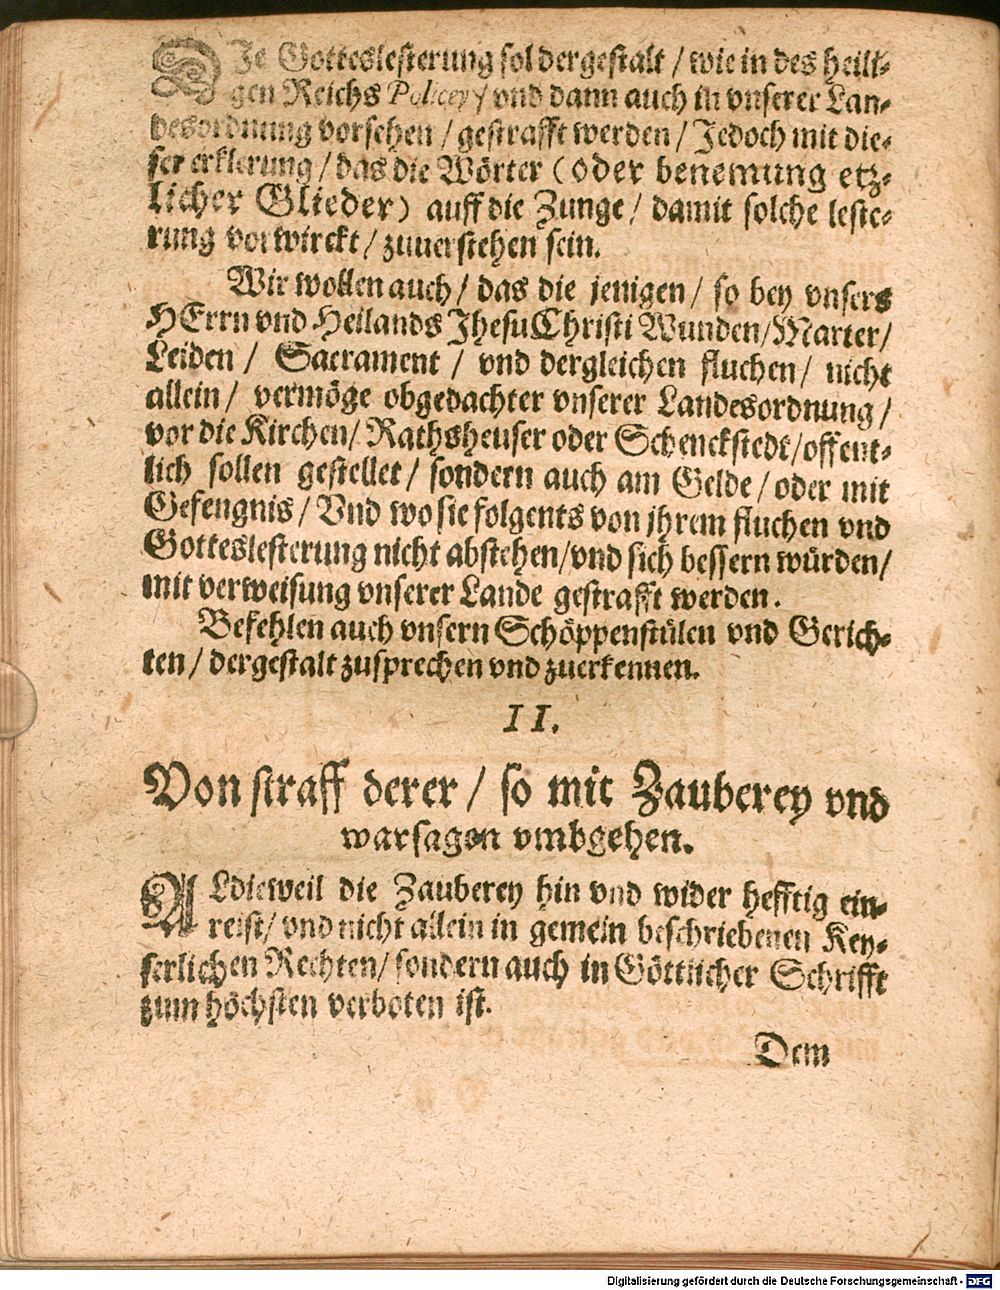 DIe Gotteslesterung sol dergestalt / wie in des heili-
gen Reichs Policey / vnd dann auch in vnserer Lan-
desordnung vorsehen / gestrafft werden / Jedoch mit die-
ser erklerung / das die Wörter (oder benemung etz-
licher Glieder) auff die Zunge / damit solche leste-
rung vorwirckt / zuuerstehen sein.
Wir wollen auch / das die jenigen / so bey vnsers
HErrn vnd Heilands Jhesu Christi Wunden / Marter /
Leiden / Sacrament / vnd dergleichen fluchen / nicht
allein / vermöge obgedachter vnserer Landesordnung /
vor die Kirchen / Rathsheuser oder Schenckstedt / offent-
lich sollen gestellet / sondern auch am Gelde / oder mit
Gefengnis / Vnd wo sie folgents von jhrem fluchen vnd
Gotteslesterung nicht abstehen / vnd sich bessern würden /
mit verweisung vnserer Lande gestrafft werden.
Befehlen auch vnsern Schöppenstülen vnd Gerich-
ten / dergestalt zusprechen vnd zuerkennen.
II.
Von straff derer / so mit Zauberey vnd
warsagen vmbgehen.
ALdieweil die Zauberey hin vnd wider hefftig ein-
reist / vnd nicht allein in gemein beschriebenen Key-
serlichen Rechten / sondern auch in Göttlicher Schrifft
zum höchsten verboten ist.
Dem
Digitalisierung gefördert durch die Deutsche Forschungsgemeinschaft - DFG